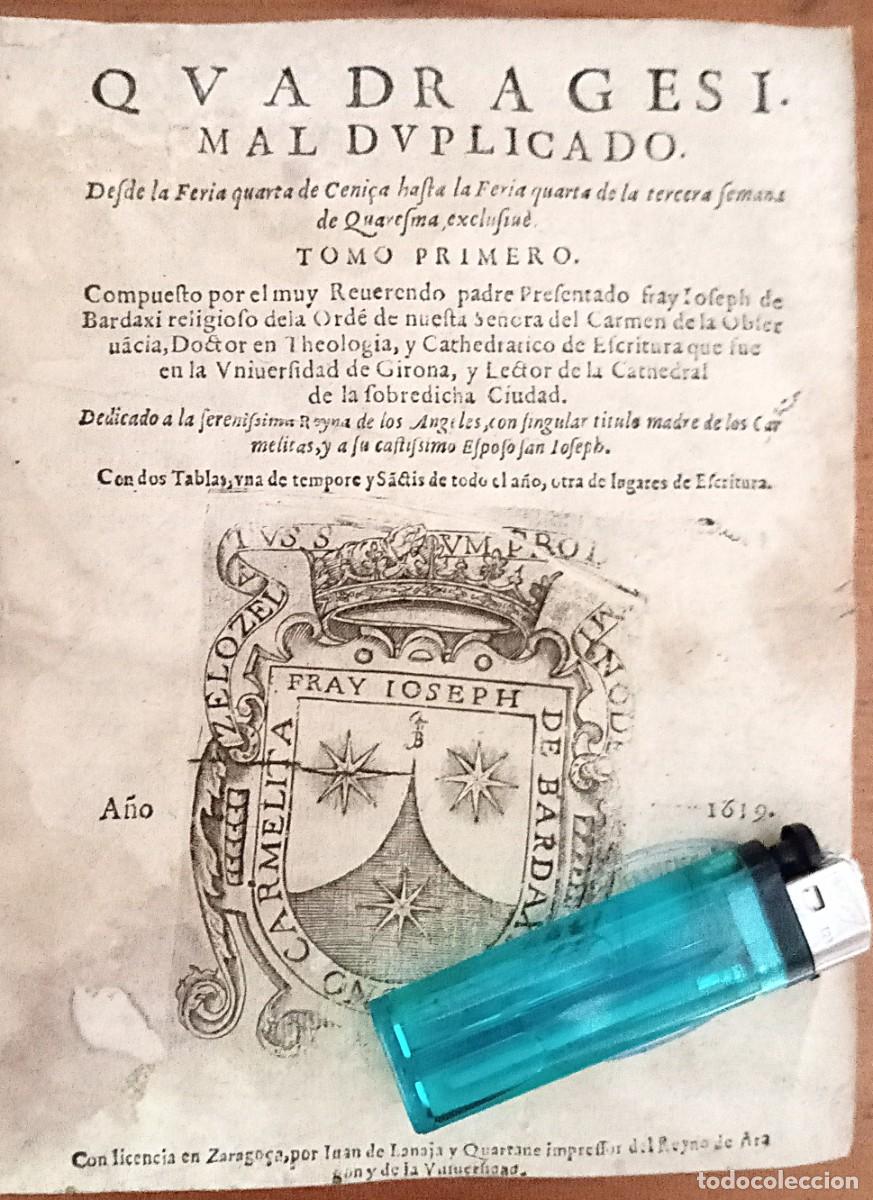 QVADRAGESI.
MAL DVPLICADO.
Deſde la Feria quarta de Ceniça haſta la Feria quarta de la tercera ſemana
de Quareſma, excluſiuè.
TOMO PRIMERO.
Compueſto por el muy Reuerendo padre Preſentado fray Ioſeph de
Bardaxi religioſo dela Ordẽ de nueſta Senora del Carmen de la Obſer
uãcia, Doctor en Theologia, y Cathedratico de Eſcritura que fue
en la Vniuerſidad de Girona, y Lector de la Cathedral
de la ſobredicha Ciudad.
Dedicado a la ſereniſsima Reyna de los Angeles, con ſingular titulo madre de los Car
melitas, y a ſu caſtiſsimo Eſpoſo ſan Ioſeph.
Con dos Tablas, vna de tempore y Sãctis de todo el año, otra de lugares de Eſcritura.
ZELO ZELATVS S VM PRO DOMINO DE
FRAY IOSEPH DE BARDAX
CARMELITA
Año 1619.
Con licencia en Zaragoça, por Iuan de Lanaja y Quartane impreſſor del Reyno de Ara
gon y de la Vniuerſidad.
todocoleccion